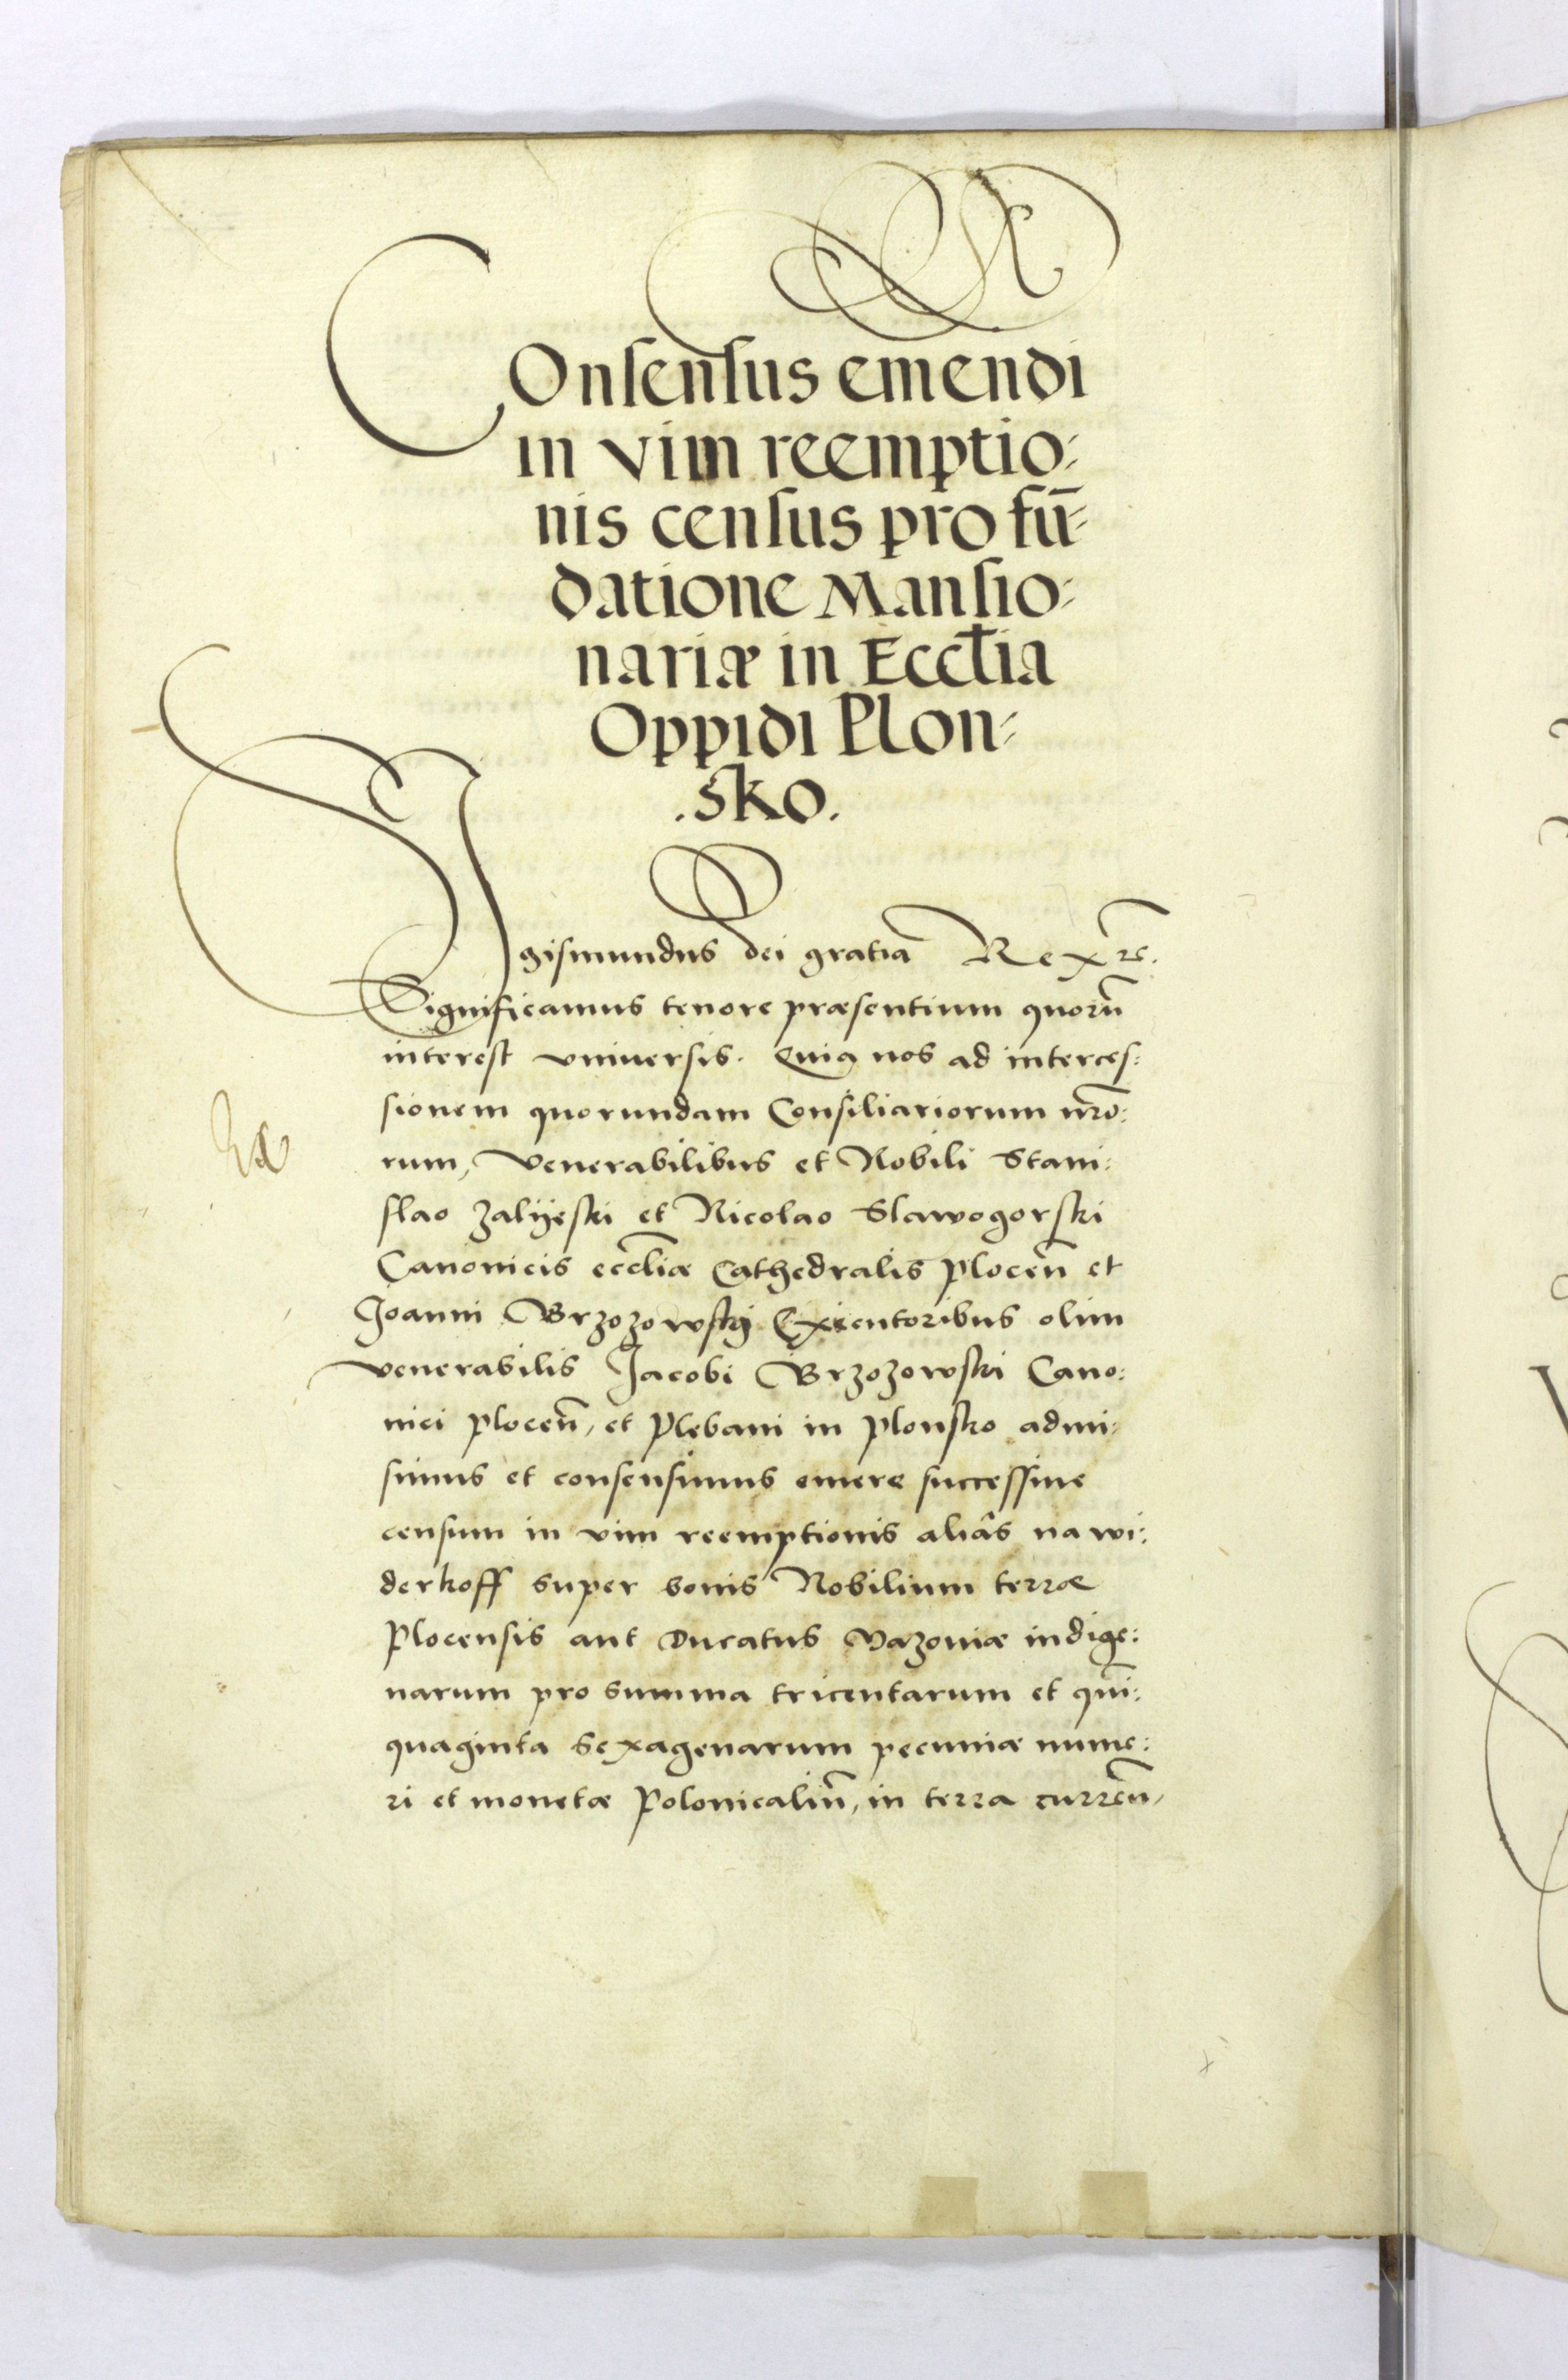 COnsensus emendi
in vim reemptio:
nis census pro fū:
datione Mansio:
nariæ in Eccl̄ia
Oppidi Plon:
.sko.
Sigismundus dei gratia Rex etc.
Significamus tenore præsentium quorū
interest vniuersis. Quia nos ad interces:
sionem quorundam Consiliariorum nr̄o:
rum, Venerabilibus et Nobili Stani:
slao Zalyeski et Nicolao Slawogorski
Canonicis eccl̄iæ Cathedralis plocen̄ et
Joanni Brzozowskij Executoribus olim
venerabilis Jacobi Brzozowski Cano:
nici plocen̄, et Plebani in plonsko admi:
simus et consensimus emere successiue
censum in vim reemptionis aliâs na wi:
derkoff super bonis Nobilium terræ
Plocensis aut Ducatus Mazoniæ indige:
narum pro summa tricentarum et qui̅:
quaginta sexagenarum pecuniæ nume:
ri et monetæ Polonicaliū, in terra curren̄,